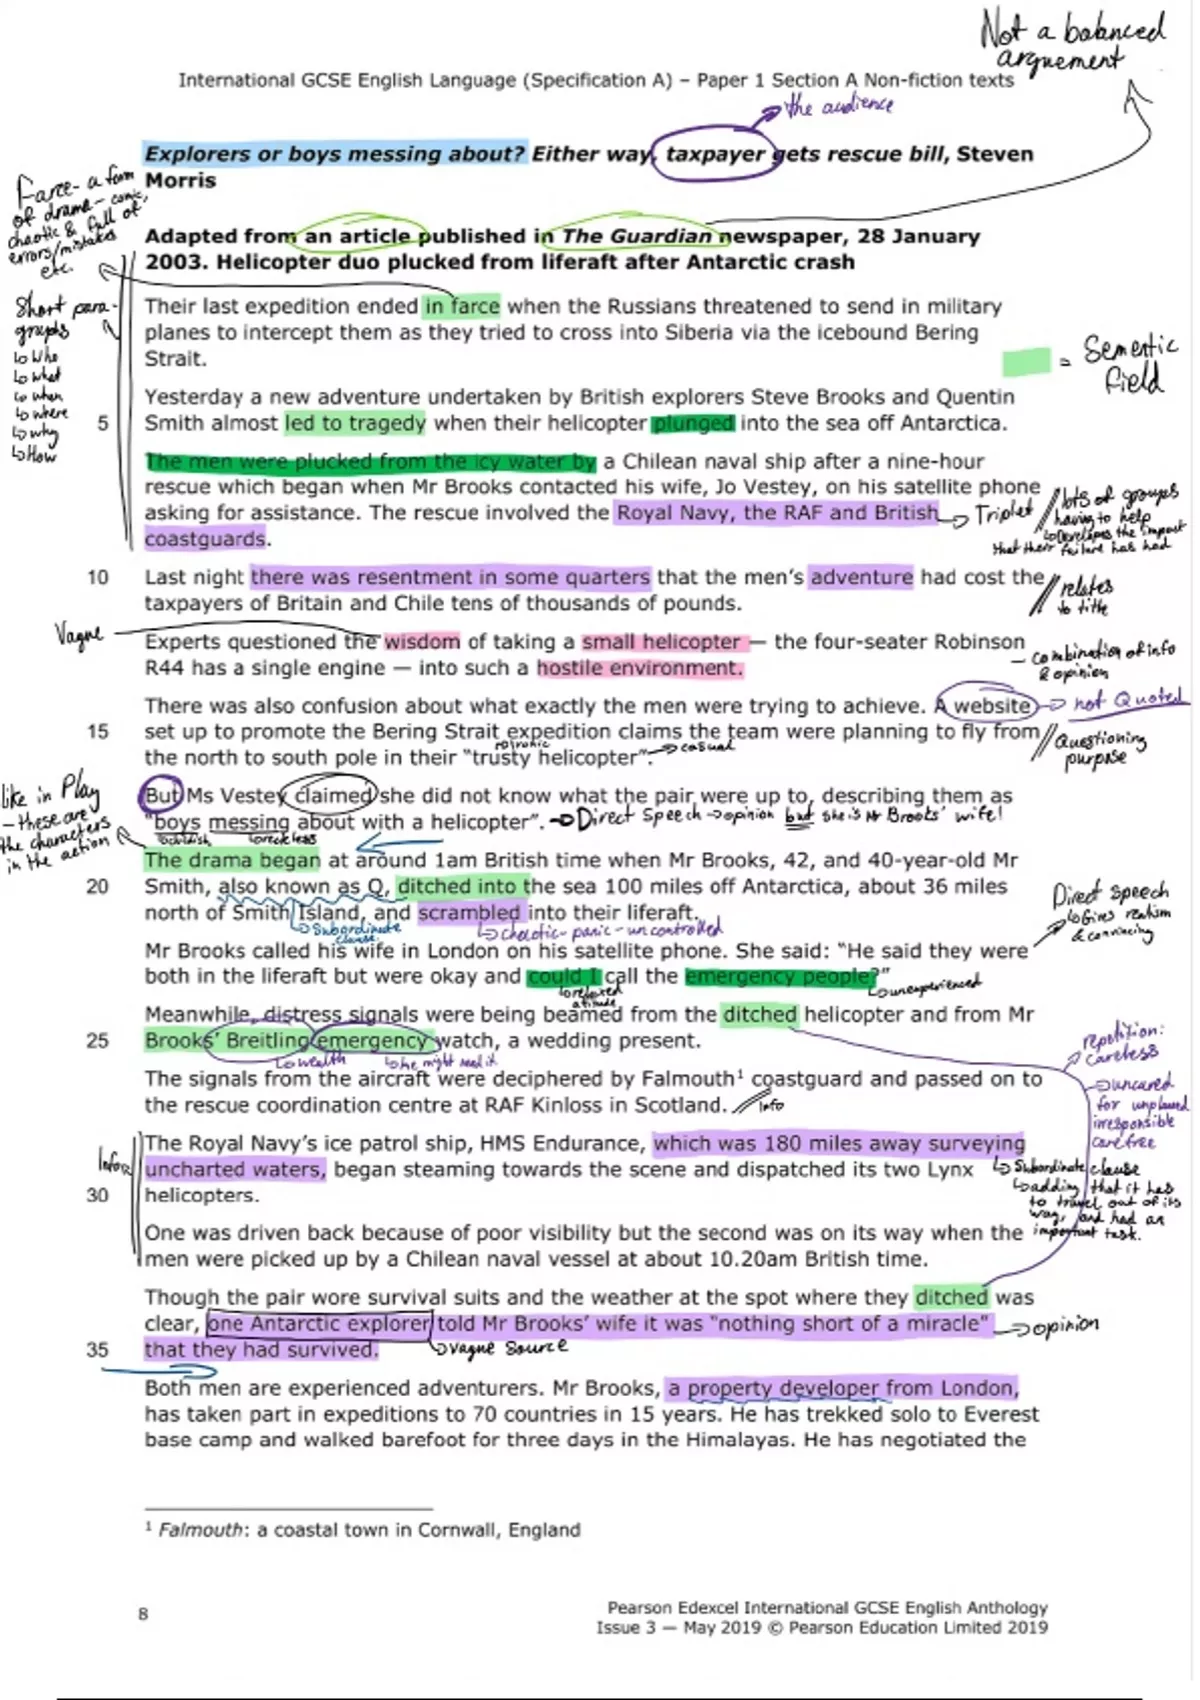 Not a balanced
arguement
International GCSE English Language (Specification A) – Paper 1 Section A Non-fiction texts
the audience
Explorers or boys messing about? Either way, taxpayer gets rescue bill, Steven
Morris
Farce- a form
of drama - comic,
chaotic & full of
errors/mistakes
etc.
Adapted from an article published in The Guardian newspaper, 28 January
2003. Helicopter duo plucked from liferaft after Antarctic crash
Short para-
graphs
↳ Who
↳ what
↳ when
↳ where
↳ why
↳ How
Their last expedition ended in farce when the Russians threatened to send in military
planes to intercept them as they tried to cross into Siberia via the icebound Bering
Strait.
= Sementic
field
Yesterday a new adventure undertaken by British explorers Steve Brooks and Quentin
5 Smith almost led to tragedy when their helicopter plunged into the sea off Antarctica.
The men were plucked from the icy water by a Chilean naval ship after a nine-hour
rescue which began when Mr Brooks contacted his wife, Jo Vestey, on his satellite phone
asking for assistance. The rescue involved the Royal Navy, the RAF and British
coastguards.
Triplet
lots of groups
having to help
↳ Developes the impact
that their failure has had
10 Last night there was resentment in some quarters that the men's adventure had cost the
taxpayers of Britain and Chile tens of thousands of pounds.
relates
to title
Vague
Experts questioned the wisdom of taking a small helicopter — the four-seater Robinson
R44 has a single engine — into such a hostile environment.
- combination of info
& opinion
There was also confusion about what exactly the men were trying to achieve. A website
15 set up to promote the Bering Strait expedition claims the team were planning to fly from
the north to south pole in their “trusty helicopter”.
not Quoted
Questioning
purpose
casual
like in Play
- these are
the characters
in the action
But Ms Vestey claimed she did not know what the pair were up to, describing them as
“boys messing about with a helicopter”.
Direct Speech → opinion but she is Mr Brooks' wife!
↳ childish
↳ reckless
The drama began at around 1am British time when Mr Brooks, 42, and 40-year-old Mr
20 Smith, also known as Q, ditched into the sea 100 miles off Antarctica, about 36 miles
north of Smith Island, and scrambled into their liferaft.
↳ Subordinate
clause
↳ chaotic - panic - uncontrolled
Direct speech
↳ Gives realism
& convincing
Mr Brooks called his wife in London on his satellite phone. She said: “He said they were
both in the liferaft but were okay and could I call the emergency people?”
↳ relaxed
attitude
↳ unexperienced
Meanwhile, distress signals were being beamed from the ditched helicopter and from Mr
25 Brooks’ Breitling emergency watch, a wedding present.
↳ wealth
↳ he might need it
repetition:
careless
→ uncared
for unplanned
irresponsible
carefree
The signals from the aircraft were deciphered by Falmouth¹ coastguard and passed on to
the rescue coordination centre at RAF Kinloss in Scotland.
info
Info
The Royal Navy’s ice patrol ship, HMS Endurance, which was 180 miles away surveying
uncharted waters, began steaming towards the scene and dispatched its two Lynx
30 helicopters.
↳ Subordinate clause
↳ adding that it has
to travel out of its
way, and had an
important task.
One was driven back because of poor visibility but the second was on its way when the
men were picked up by a Chilean naval vessel at about 10.20am British time.
Though the pair wore survival suits and the weather at the spot where they ditched was
clear, one Antarctic explorer told Mr Brooks’ wife it was “nothing short of a miracle”
35 that they had survived.
→ opinion
↳ Vague Source
Both men are experienced adventurers. Mr Brooks, a property developer from London,
has taken part in expeditions to 70 countries in 15 years. He has trekked solo to Everest
base camp and walked barefoot for three days in the Himalayas. He has negotiated the
¹ Falmouth: a coastal town in Cornwall, England
8
Pearson Edexcel International GCSE English Anthology
Issue 3 — May 2019 © Pearson Education Limited 2019